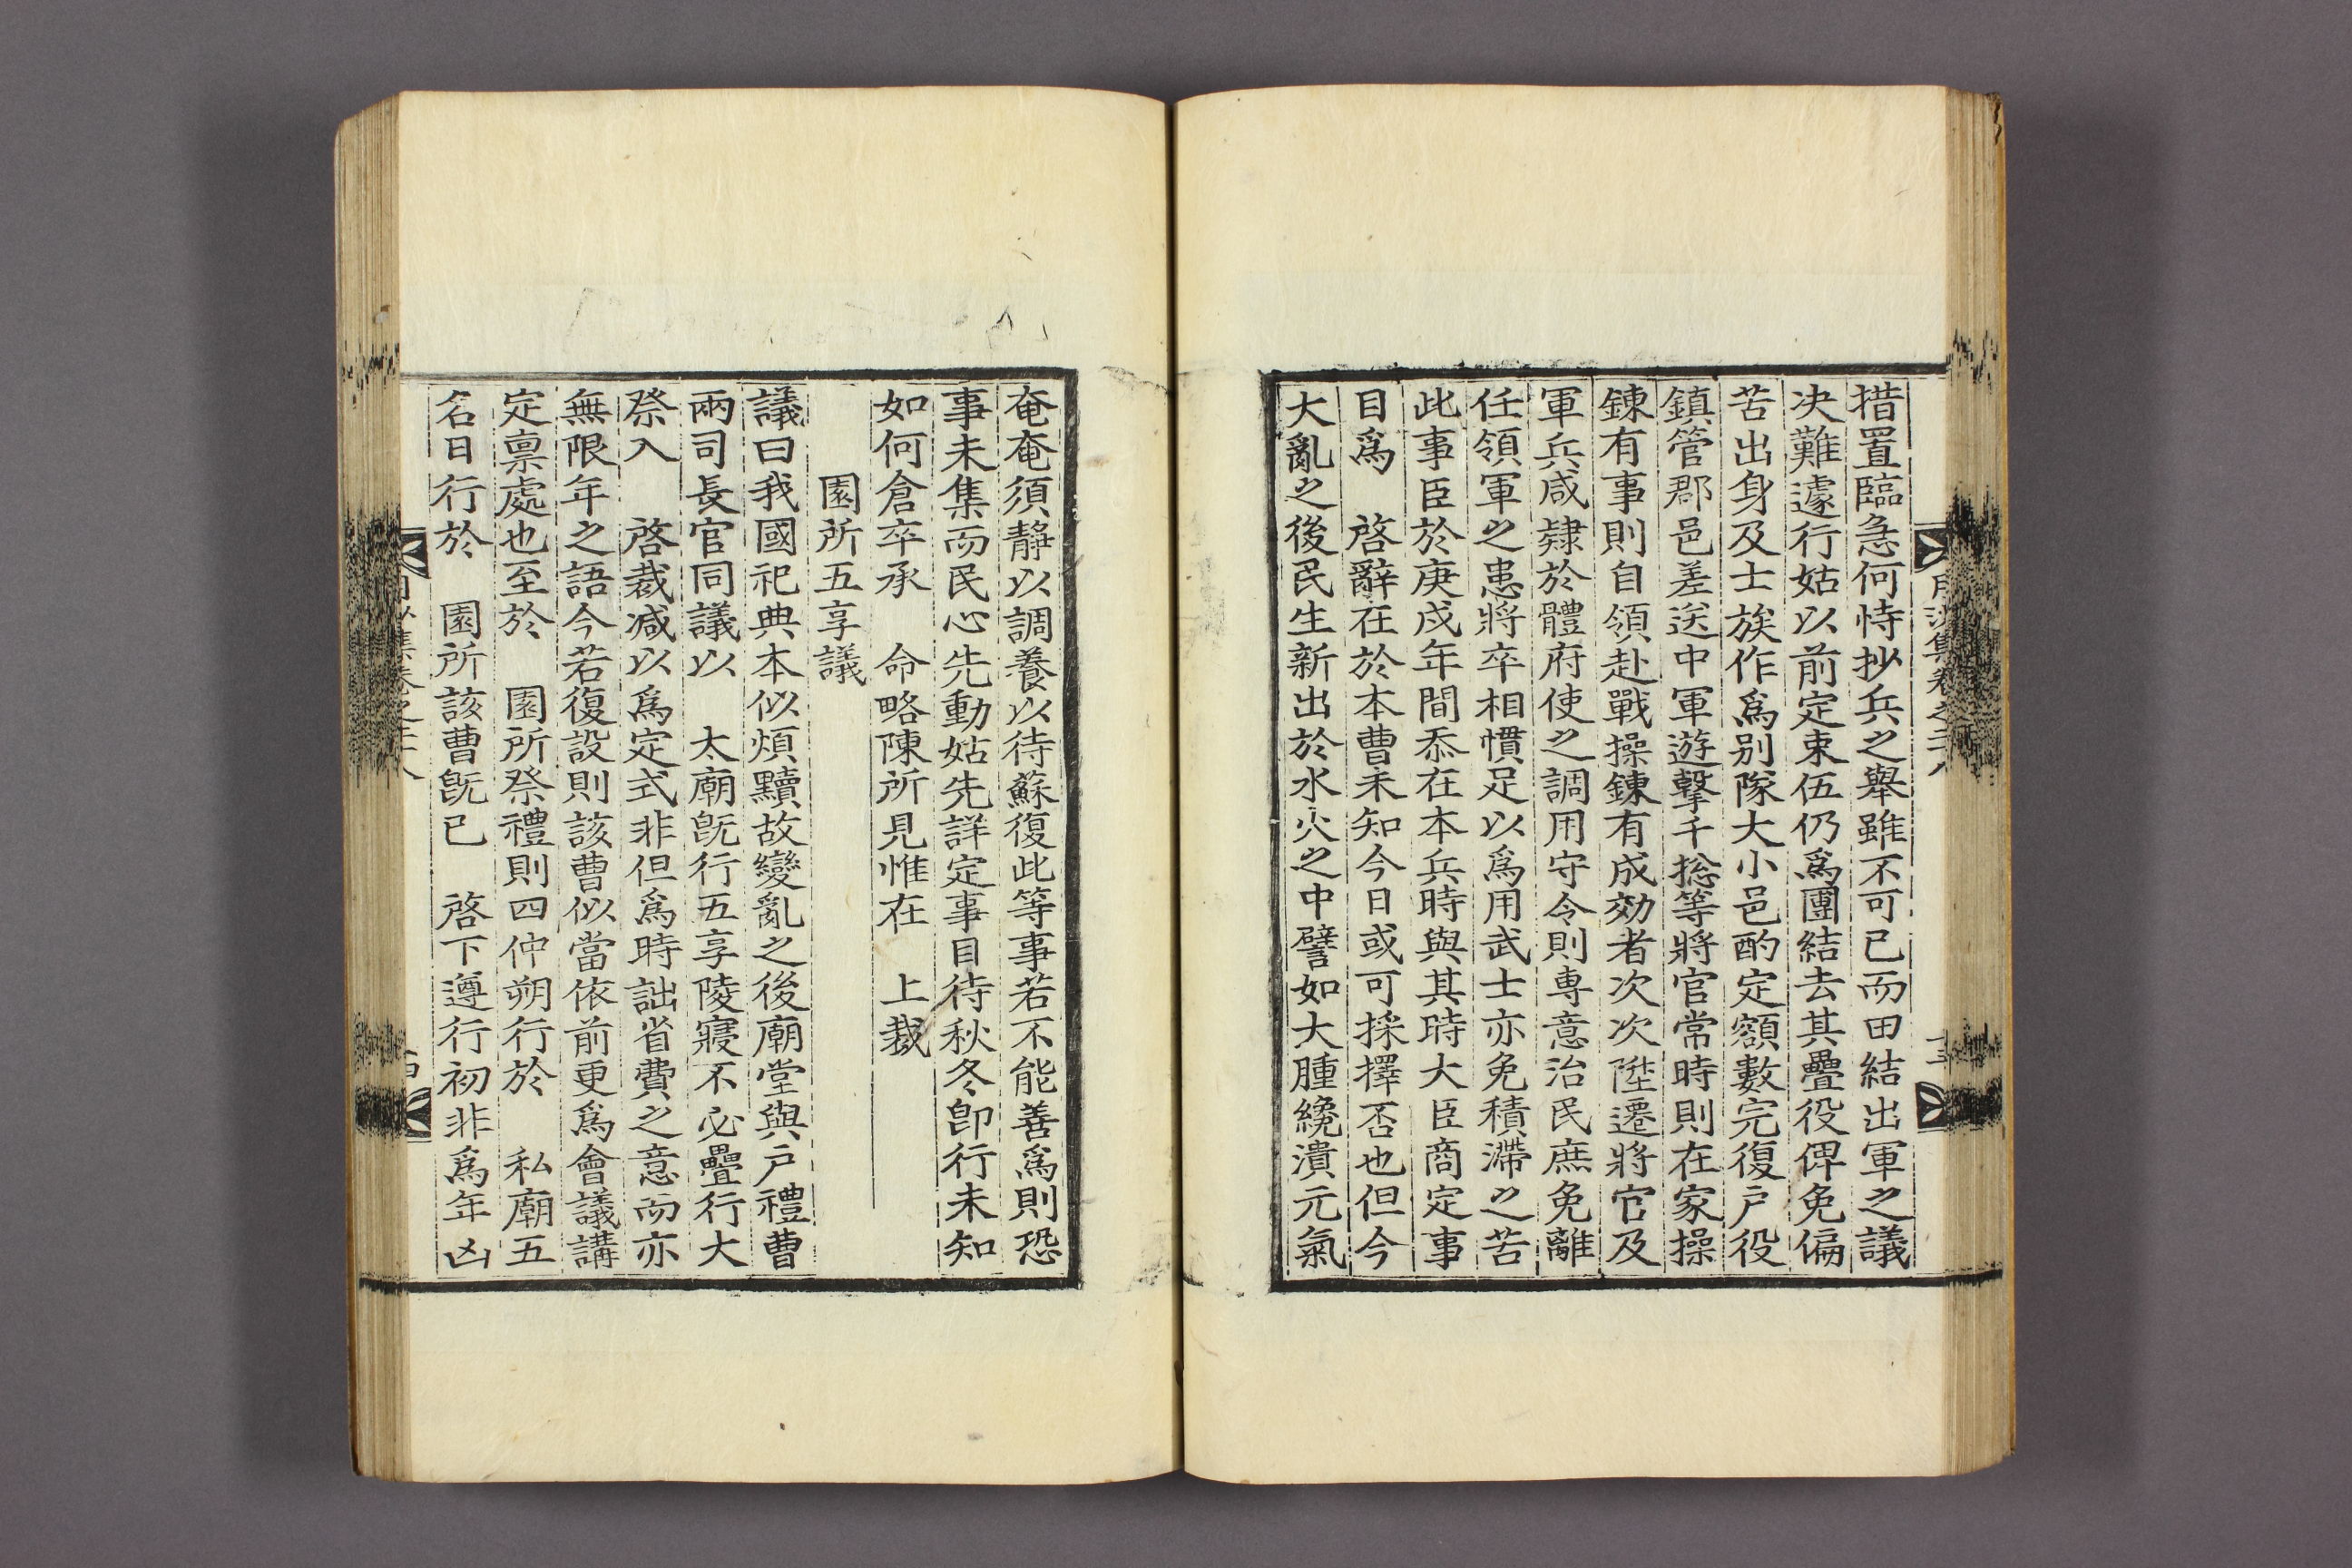 措置臨急何恃抄兵之擧雖不可已而田結出軍之議
决難遽行姑以前定束伍仍爲團結去其疊役俾免偏
苦出身及士族作爲别隊大小邑酌定額數完復戶役
鎮管郡邑差送中軍遊擊千揔等將官常時則在家操
鍊有事則自領赴戰操鍊有成効者次次陞遷將官及
軍兵咸隷於體府使之調用守令則專意治民庶免離
任領軍之患將卒相慣足以爲用武士亦免積滯之苦
此事臣於庚戌年間忝在本兵時與其時大臣商定事
目爲　啓辭在於本曹未知今日或可採擇否也但今
大亂之後民生新出於水火之中譬如大腫纔潰元氣
奄奄須靜以調養以待蘇復此等事若不能善爲則恐
事未集而民心先動姑先詳定事目待秋冬卽行未知
如何倉卒承　命略陳所見惟在　上裁
園所五享議
議曰我國祀典本似煩黷故變亂之後廟堂與戶禮曹
兩司長官同議以　太廟旣行五享陵寢不必疊行大
祭入　啓裁减以爲定式非但爲時詘省費之意而亦
無限年之語今若復設則該曹似當依前更爲會議講
定禀處也至於　園所祭禮則四仲朔行於　私廟五
名日行於　園所該曹旣已　啓下遵行初非爲年凶